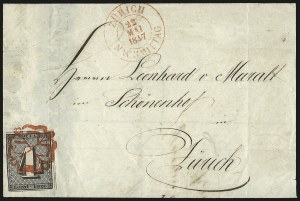 ZÜRICH
22
MAI
1847
NACHMITTAG
Herrn Leonhard v Muralt
im Schönenhof
Zürich
4